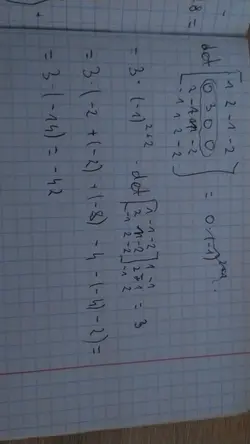 8 =
det [ 1 2 -1 -2
0 3 0 0
2 -1 1 -2
-1 1 2 -2 ] = 0·(-1)
= 3 · (-1)^{2+2} · det [ 1 -1 -2
2 1 -2
-1 2 -2 ] 1 -1
2 1
-1 2 = 3
= 3 · (-2 + (-2) + (-8) - 4 - (-4) - 2) =
= 3 · (-14) = -42